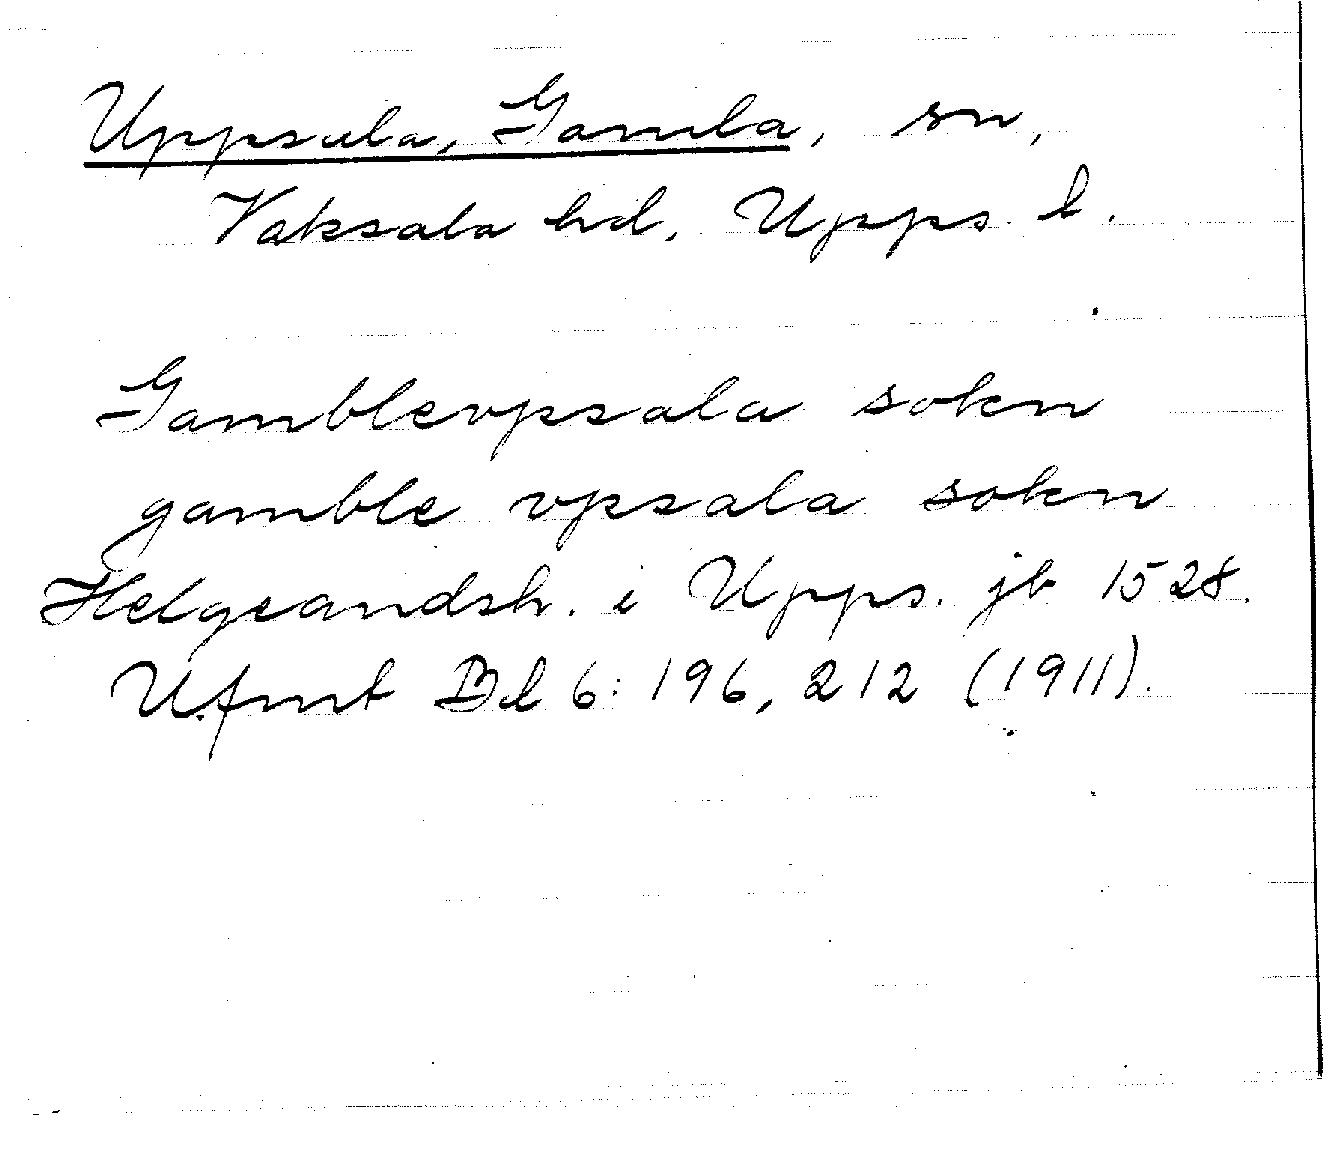 Uppsala, Gamla, sn,
Vaksala hd, Upps. l.
Gamblevpsala sokn
gamble vpsala sokn
Helgeandsh. i Upps. jb 1528.
Ufmt Bd 6: 196, 212 (1911).